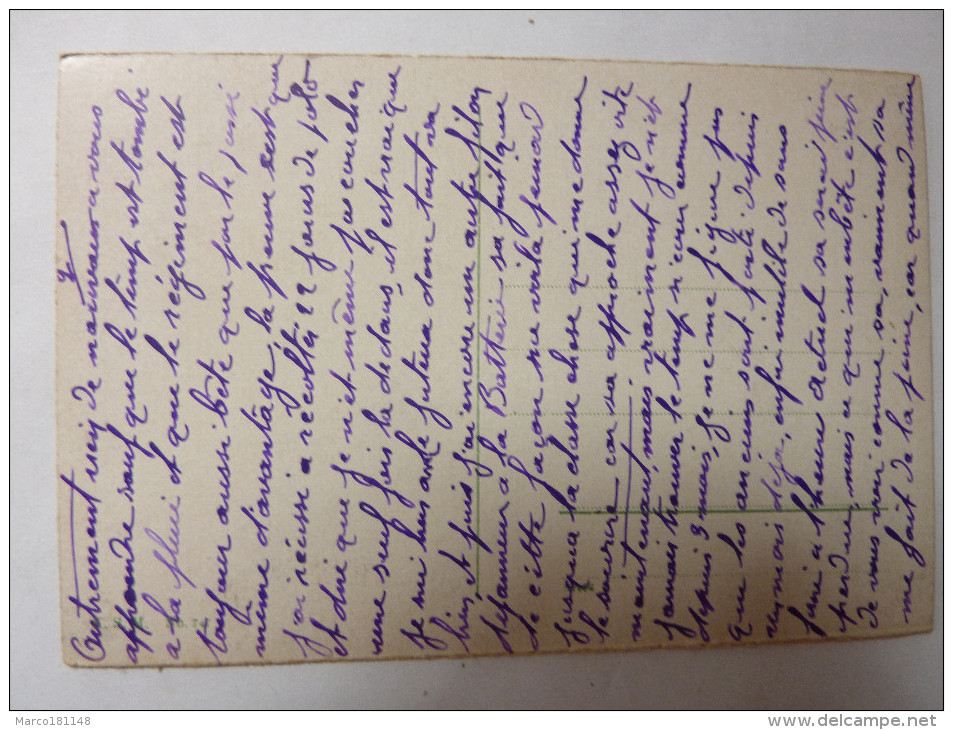 Autrement rien de nouveau a vous
apprendre sauf que le temp est tombé
a la pluie et que le régiment est
toujour aussi bête que par le passé
même d'avantage, la preuve c'est que
j'ai réussi a récolter 22 jours de
et dire que je n'est même pas coucher
une seul fois la dedans, il est vrai que
je suis huis ante futeua donc tout va
bien, et puis j'ai encore un autre filon
déjeuner a la Batterie sa fait que
de cette façon me voila peinard
jusqua la classe chose qui me donne
le sourire car sa approche asser vite
maintenant, mais vraiment je n'est
jamais trouver le temp si courir comme
depuis 3 mois, je ne me figure pas
que les anciens sont parti depuis
un mois déja, enfin inutile de sans
faire a l'heure actuel sa serait peine
perdue, mais ce qui m'enbête c'est
de vous voir comme sa, vraiment sa
me fait de la peine, car quand même
Marco181148
www.delcampe.net